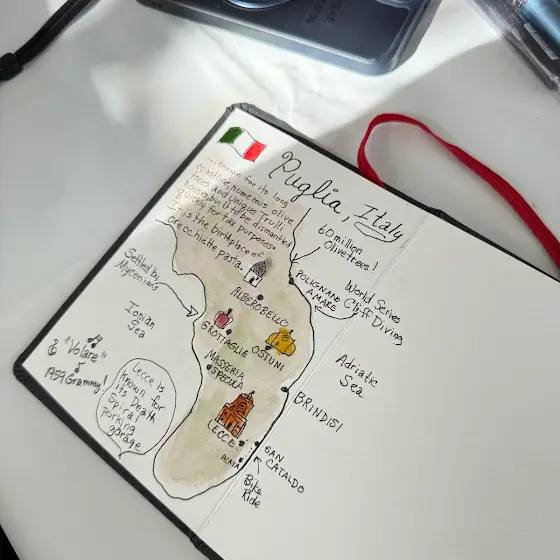 Puglia, Italy
...known for its long
coastline, numerous olive
trees and unique Trulli
houses, built to be dismantled
quickly for tax purposes.
It is the birthplace of
orecchiette pasta.
60 million
Olive trees!
POLIGNANO
A MARE
World Series
Cliff Diving
ALBEROBELLO
Settled by
Mycenians
Ionian
Sea
GROTTAGLIE
OSTUNI
Adriatic
Sea
MASSERIA
SPECULA
BRINDISI
"Volare"
1959 Grammy!
Lecce is
known for
its Death
Spiral
parking
garage
LECCE
SAN
CATALDO
ACAYA
Bike
Ride